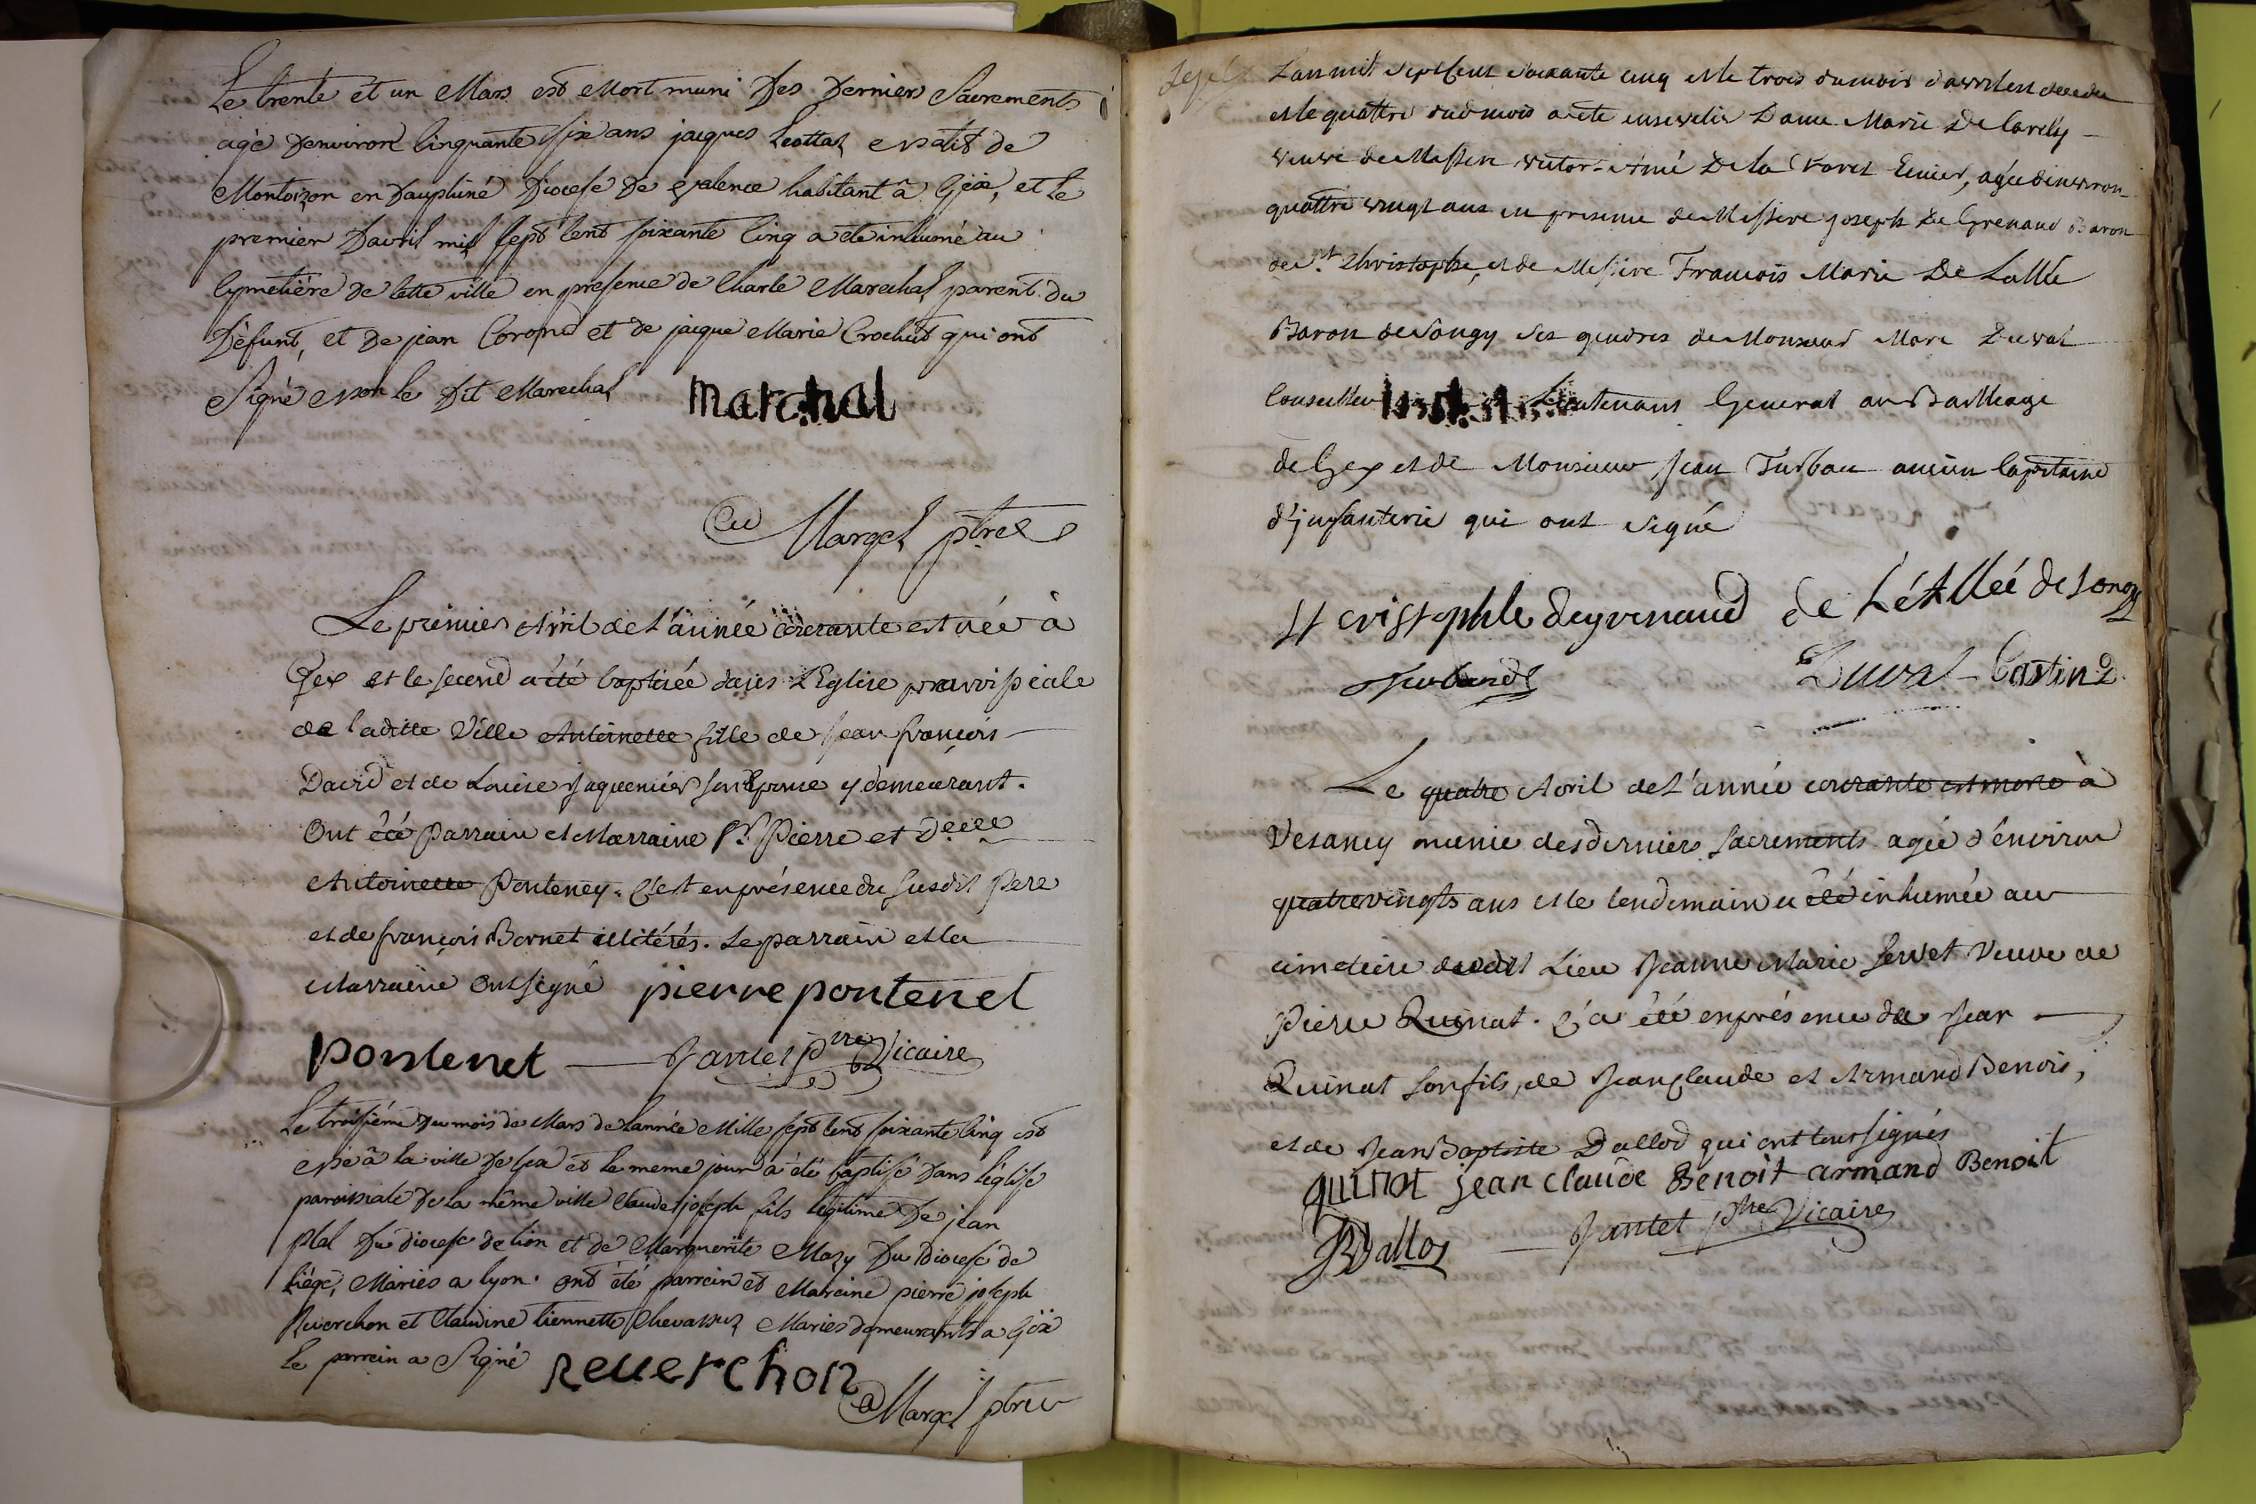 Le trente et un Mars est Mort muni Des Derniers Sacrements
agé Denviron Cinquante Six ans jacques natif de
Montoizon en Dauphiné Diocese De valence habitant à Gex, et le
premier Davril mil sept Cent soixante Cinq a ete inhumé au
Cymetière de Cette ville en presence de Charle Marechal parent du
Défunt, et De jean et de jacque Marie Crochet qui ont
Signé non le Dit Marechal marchal
Marget ptre
Le premier Avril de L'année courante est née à
Gex et le second a été baptisée dans L'Eglise parroissiale
de laditte Ville Antoinette fille de Jean françois
David et de Louise Jaquenier son Epouse y demeurant.
Ont été Parrain et Marraine Sr. Pierre et Delle
Antoinette Ponteney. C'est en présence du susdit Pere
et de françois Bornet illitérés. Le parrain et la
Marraine ont signé pierre pontenet
pontenet Jantet Ptre Vicaire
Le troisiéme Du mois de Mars de Lannée Mille sept Cent soixante Cinq est
né à la ville De Gex et le meme jour a été baptisé Dans léglise
paroissiale De la même ville Claude joseph fils légitime De jean
plat Du diocese de lion et de Marguerite Mazy Du Diocese de
liége, Mariés a lyon. ont été parrein et Mareine pierre joseph
Reverchon et Claudine tiennette Chevassus Mariés demeurants a Gex
le parrein a Signé reuerchon
Marget ptre
L'an mil sept Cent soixante cinq et le trois du mois d'avril est decedée
et le quattre dud mois a été ensevelie Dame Marie De
veuve de Messire victor Amé De la Foret Ecuier, agée d'environ
quattre vingt ans en presence de Messire joseph De Grenaud Baron
de St. Christophe, et de Messire Francois Marie De Lallée
Baron de Songy ses gendres de Monsieur Marc Duval
Conseiller Lieutenant General au Bailliage
de Gex et de Monsieur Jean Turban ancien Capitaine
d'jnfanterie qui ont signé
St cristophle degrenaud de LétAlleé de Songy
Turband Duval Castin
Le quatre Avril de L'année courante est morte à
Vesancy munie des derniers Sacrements agée d'environ
quatrevingts ans et le lendemain a été inhumée au
cimetière dudit Lieu Jeanne Marie Servet Veuve de
Pierre Quinat. C'a été en présence de Jean
Quinat son fils, de Jean Claude et Armand Benoit,
et de Jean Baptiste Dallod qui ont tous signés
quinat jean claude Benoit armand Benoit
JBDallos Jantet Ptre Vicaire